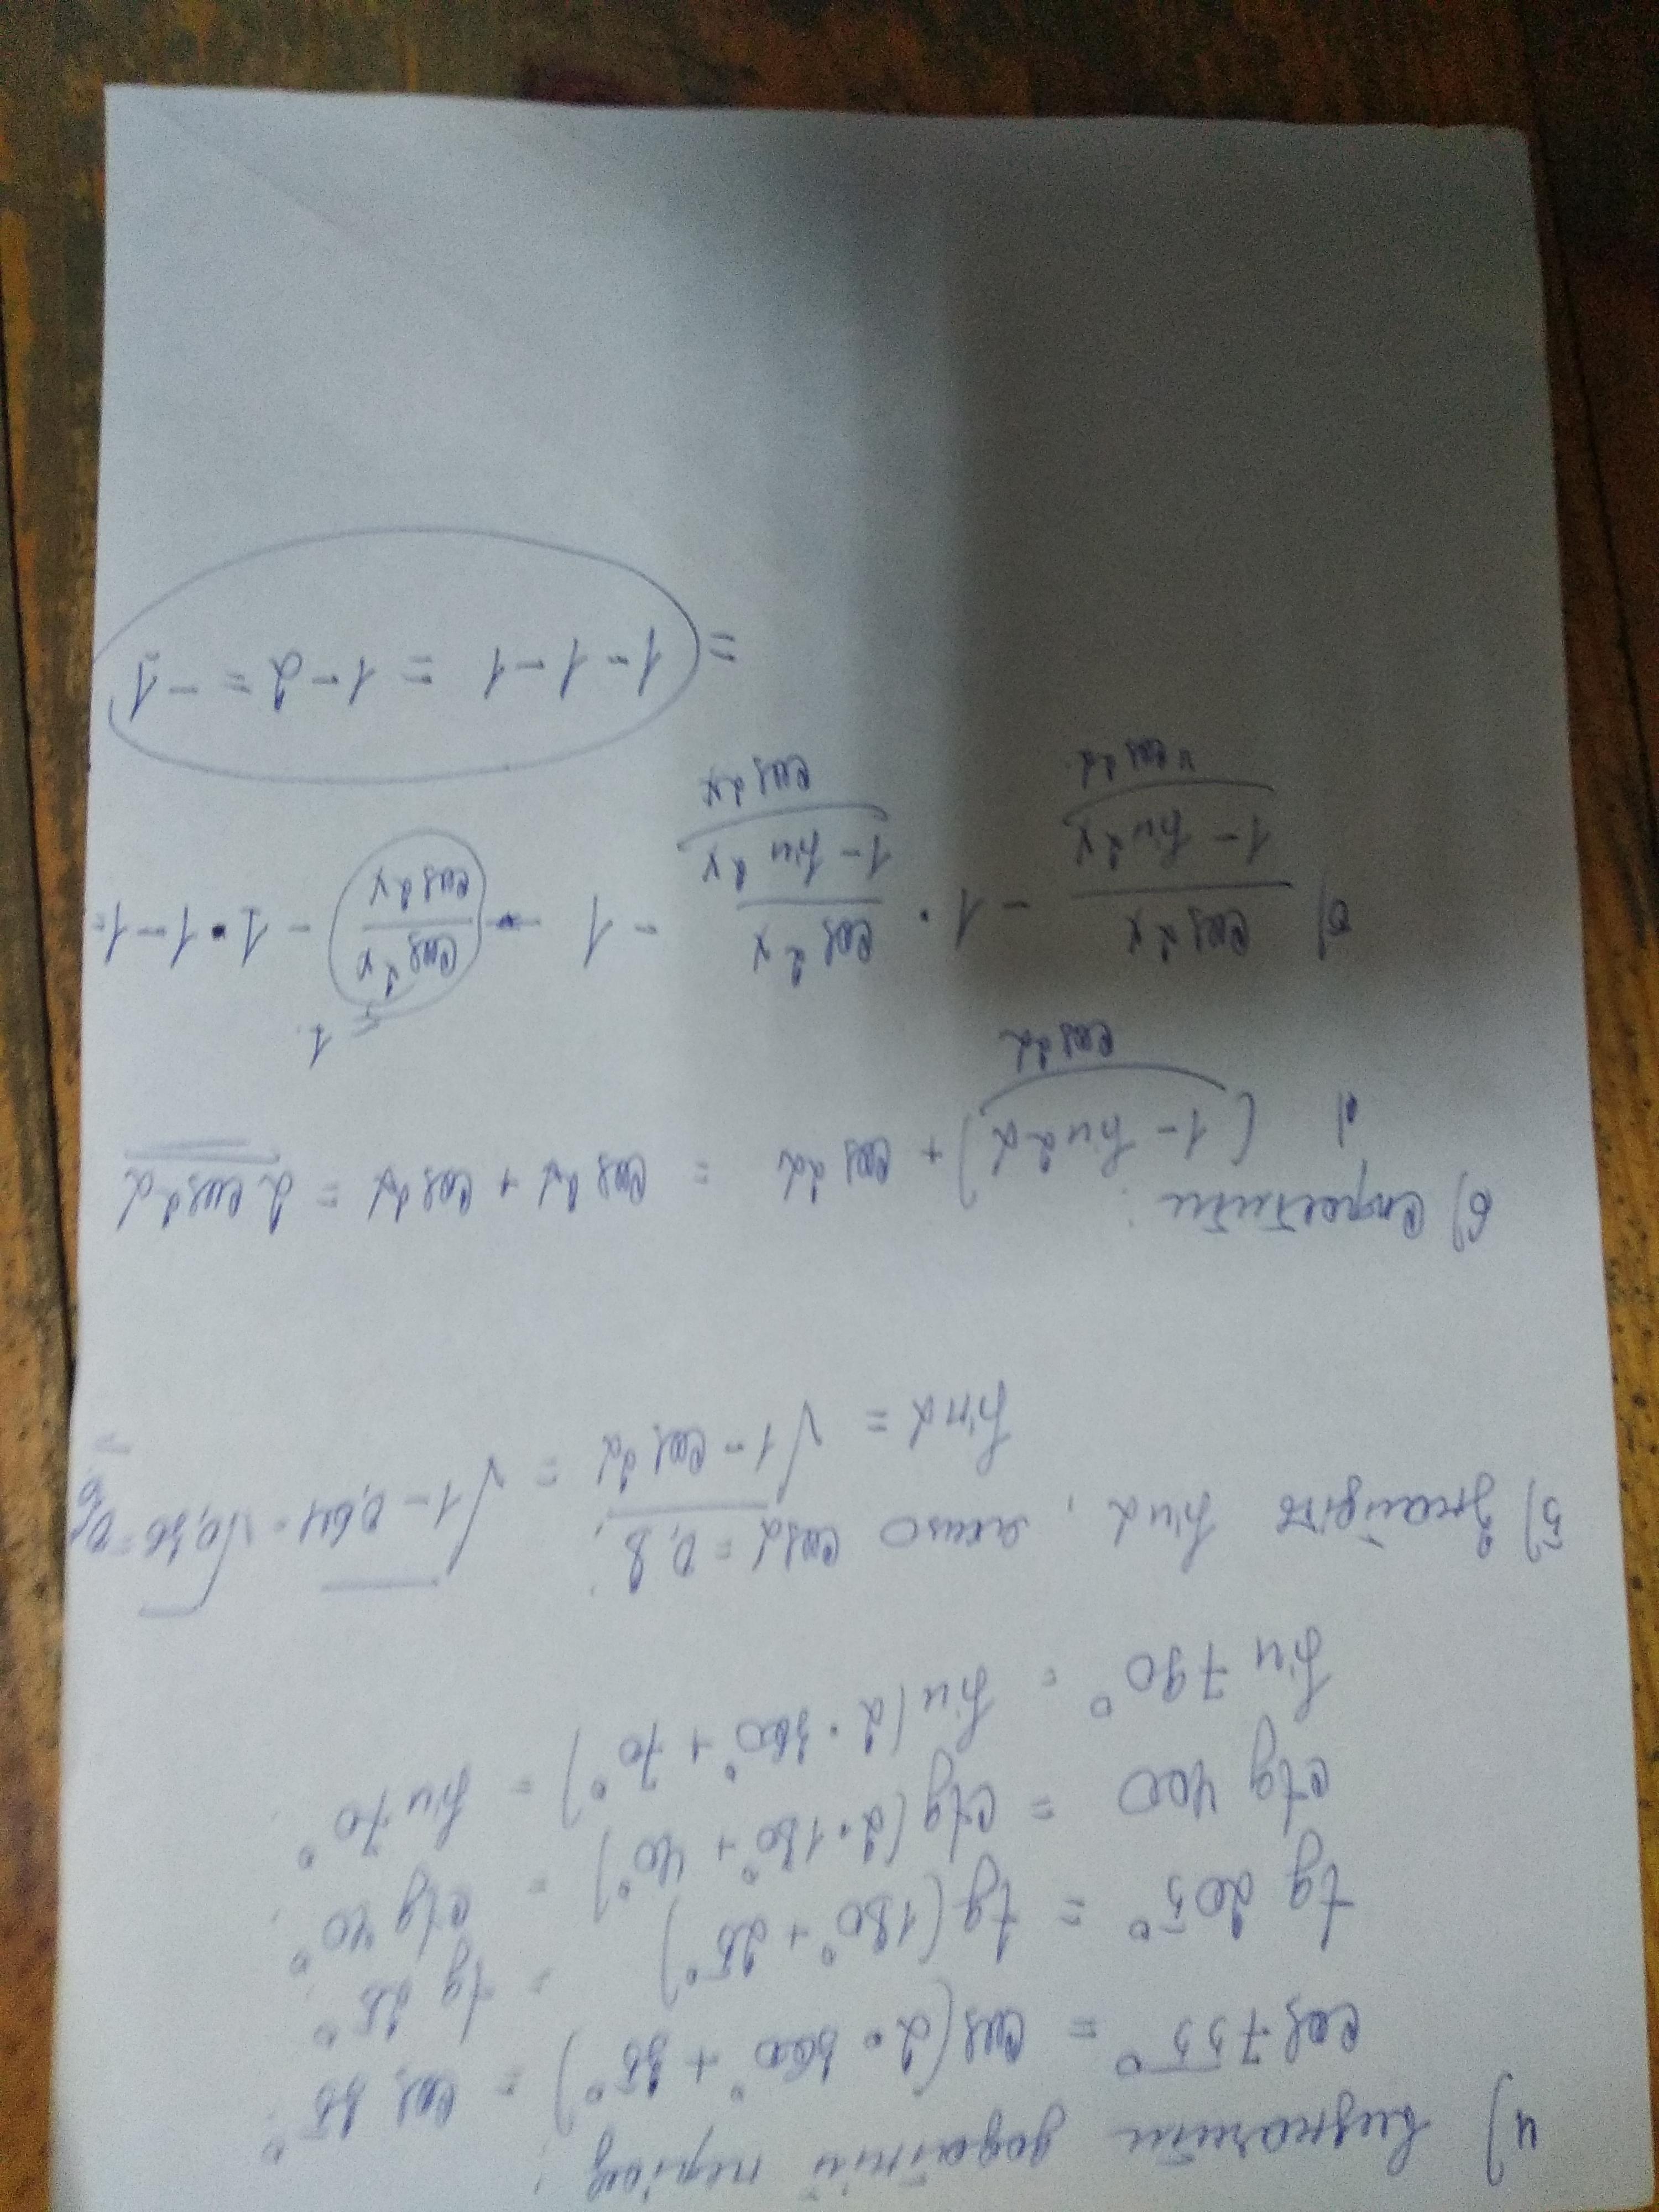 4) Визначити додатній період:
cos 755° = cos(2·360° + 35°) = cos 35°
tg 205° = tg(180° + 25°) = tg 25°
ctg 400 = ctg(2·180° + 40°) = ctg 40°;
sin 790° = sin(2·360° + 70°) = sin 70°;
5) Знайдіть sin α, якщо cos α = 0,8;
sin α = √1 - cos 2α = √1 - 0,64 = √0,36 = 0,6
6) Спростити:
(1 - sin 2α) + cos 2α = cos 2α + cos 2α = 2 cos 2α
cos 2α
= 1
cos 2α / 1 - sin 2α - 1 · cos 2α / 1 - sin 2α - 1 - cos 2α / cos 2α - 1 · 1 - 1 =
cos 2α cos 2α
= 1 - 1 - 1 = 1 - 2 = -1